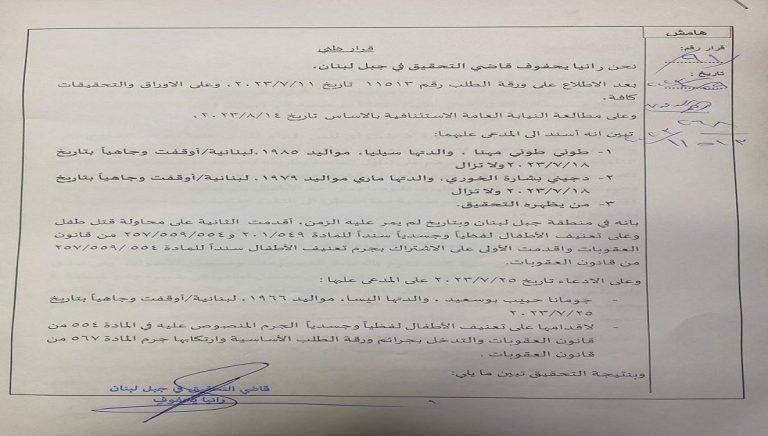 هامش
قرار رقم:
تاريخ :
قرار ظني
نحن رانيا يحفوف قاضي التحقيق في جبل لبنان،
بعد الاطلاع على ورقة الطلب رقم ١١٥١٣ تاريخ ٢٠٢٣/٧/١١، وعلى الاوراق والتحقيقات
كافة،
وعلى مطالعة النيابة العامة الاستئنافية بالاساس تاريخ ٢٠٢٣/٨/١٤،
تبين انه أسند الى المدعى عليهما:
١- طوني طوني مهنا ، والدتها سيليا، مواليد ١٩٨٥، لبنانية/أوقفت وجاهياً بتاريخ
٢٠٢٣/٧/١٨ ولا تزال
٢- دجيني بشارة الخوري، والدتها ماري مواليد ١٩٧٩، لبنانية/أوقفت وجاهياً بتاريخ
٢٠٢٣/٧/١٨ ولا تزال
٣- من يظهره التحقيق.
بانه في منطقة جبل لبنان وبتاريخ لم يمر عليه الزمن، أقدمت الثانية على محاولة قتل طفل
وعلى تعنيف الأطفال لفظياً وجسدياً سنداً للمادة ٢٠١/٥٤٩ و ٢٥٧/٥٥٩/٥٥٤ من قانون
العقوبات واقدمت الأولى على الاشتراك بجرم تعنيف الأطفال سنداً للمادة ٥٥٤ /٢٥٧/٥٥٩
من قانون العقوبات.
وعلى الادعاء تاريخ ٢٠٢٣/٧/٢٥ على المدعى عليها:
- جومانا حبيب بوسعيد ، والدتها اليسا، مواليد ١٩٦٦، لبنانية/أوقفت وجاهياً بتاريخ
٢٠٢٣/٧/٢٥
- لاقدامها على تعنيف الأطفال لفظياً وجسدياً الجرم المنصوص عليه في المادة ٥٥٤ من
قانون العقوبات والتدخل بجرائم ورقة الطلب الأساسية وارتكابها جرم المادة ٥٦٧ من
قانون العقوبات .
وبنتيجة التحقيق تبين ما يلي:
قاضي التحقيق في جبل لبنان
رانيا يحفوف